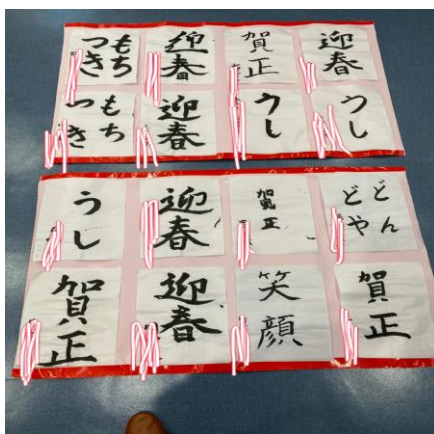 もち
つき
迎春
賀正
迎春
もち
つき
迎春
うし
うし
うし
迎春
賀正
どん
どや
賀正
迎春
笑顔
賀正